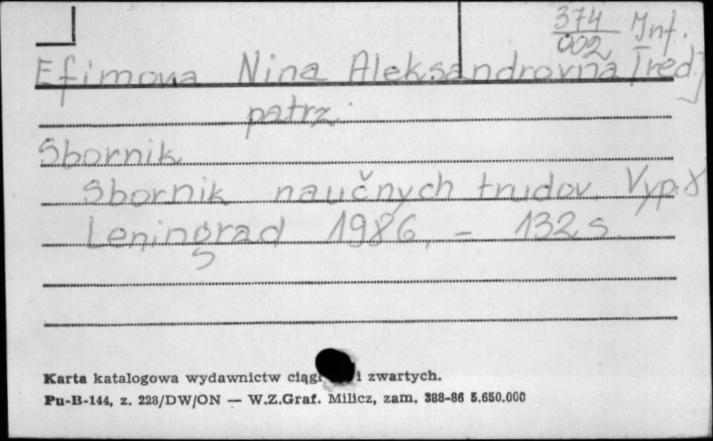 374 Inf.
002
Efimova Nina Aleksandrovna [red.]
patrz:
Sbornik
Sbornik naučnych trudov. Vyp. 8
Leningrad 1986. - 132 s.
Karta katalogowa wydawnictw ciągł i zwartych.
Pu-B-144, z. 228/DW/ON — W.Z.Graf. Milicz, zam. 388-86 5.650.000